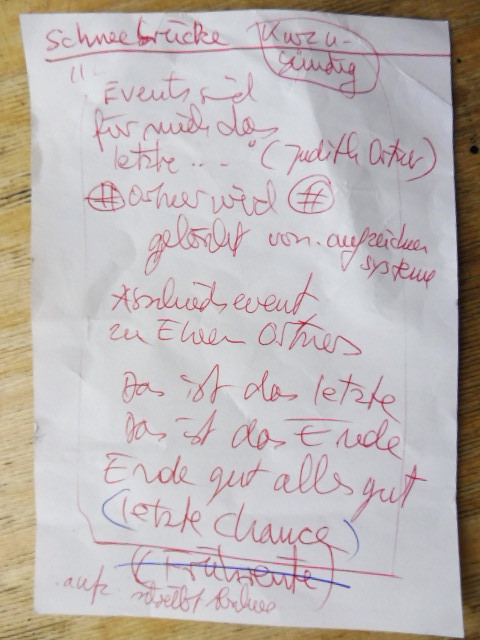 Schneebrücke Kurz u-
sündig
"Events sind
für mich das
letzte ...." (Judith Ortner)
# Ortner wird #
gelöscht von aufzeichnen
systeme
Abschiedsevent
zu Ehren Ortners
Das ist das letzte
Das ist das Ende
Ende gut alles gut
(letzte Chance)
aufz